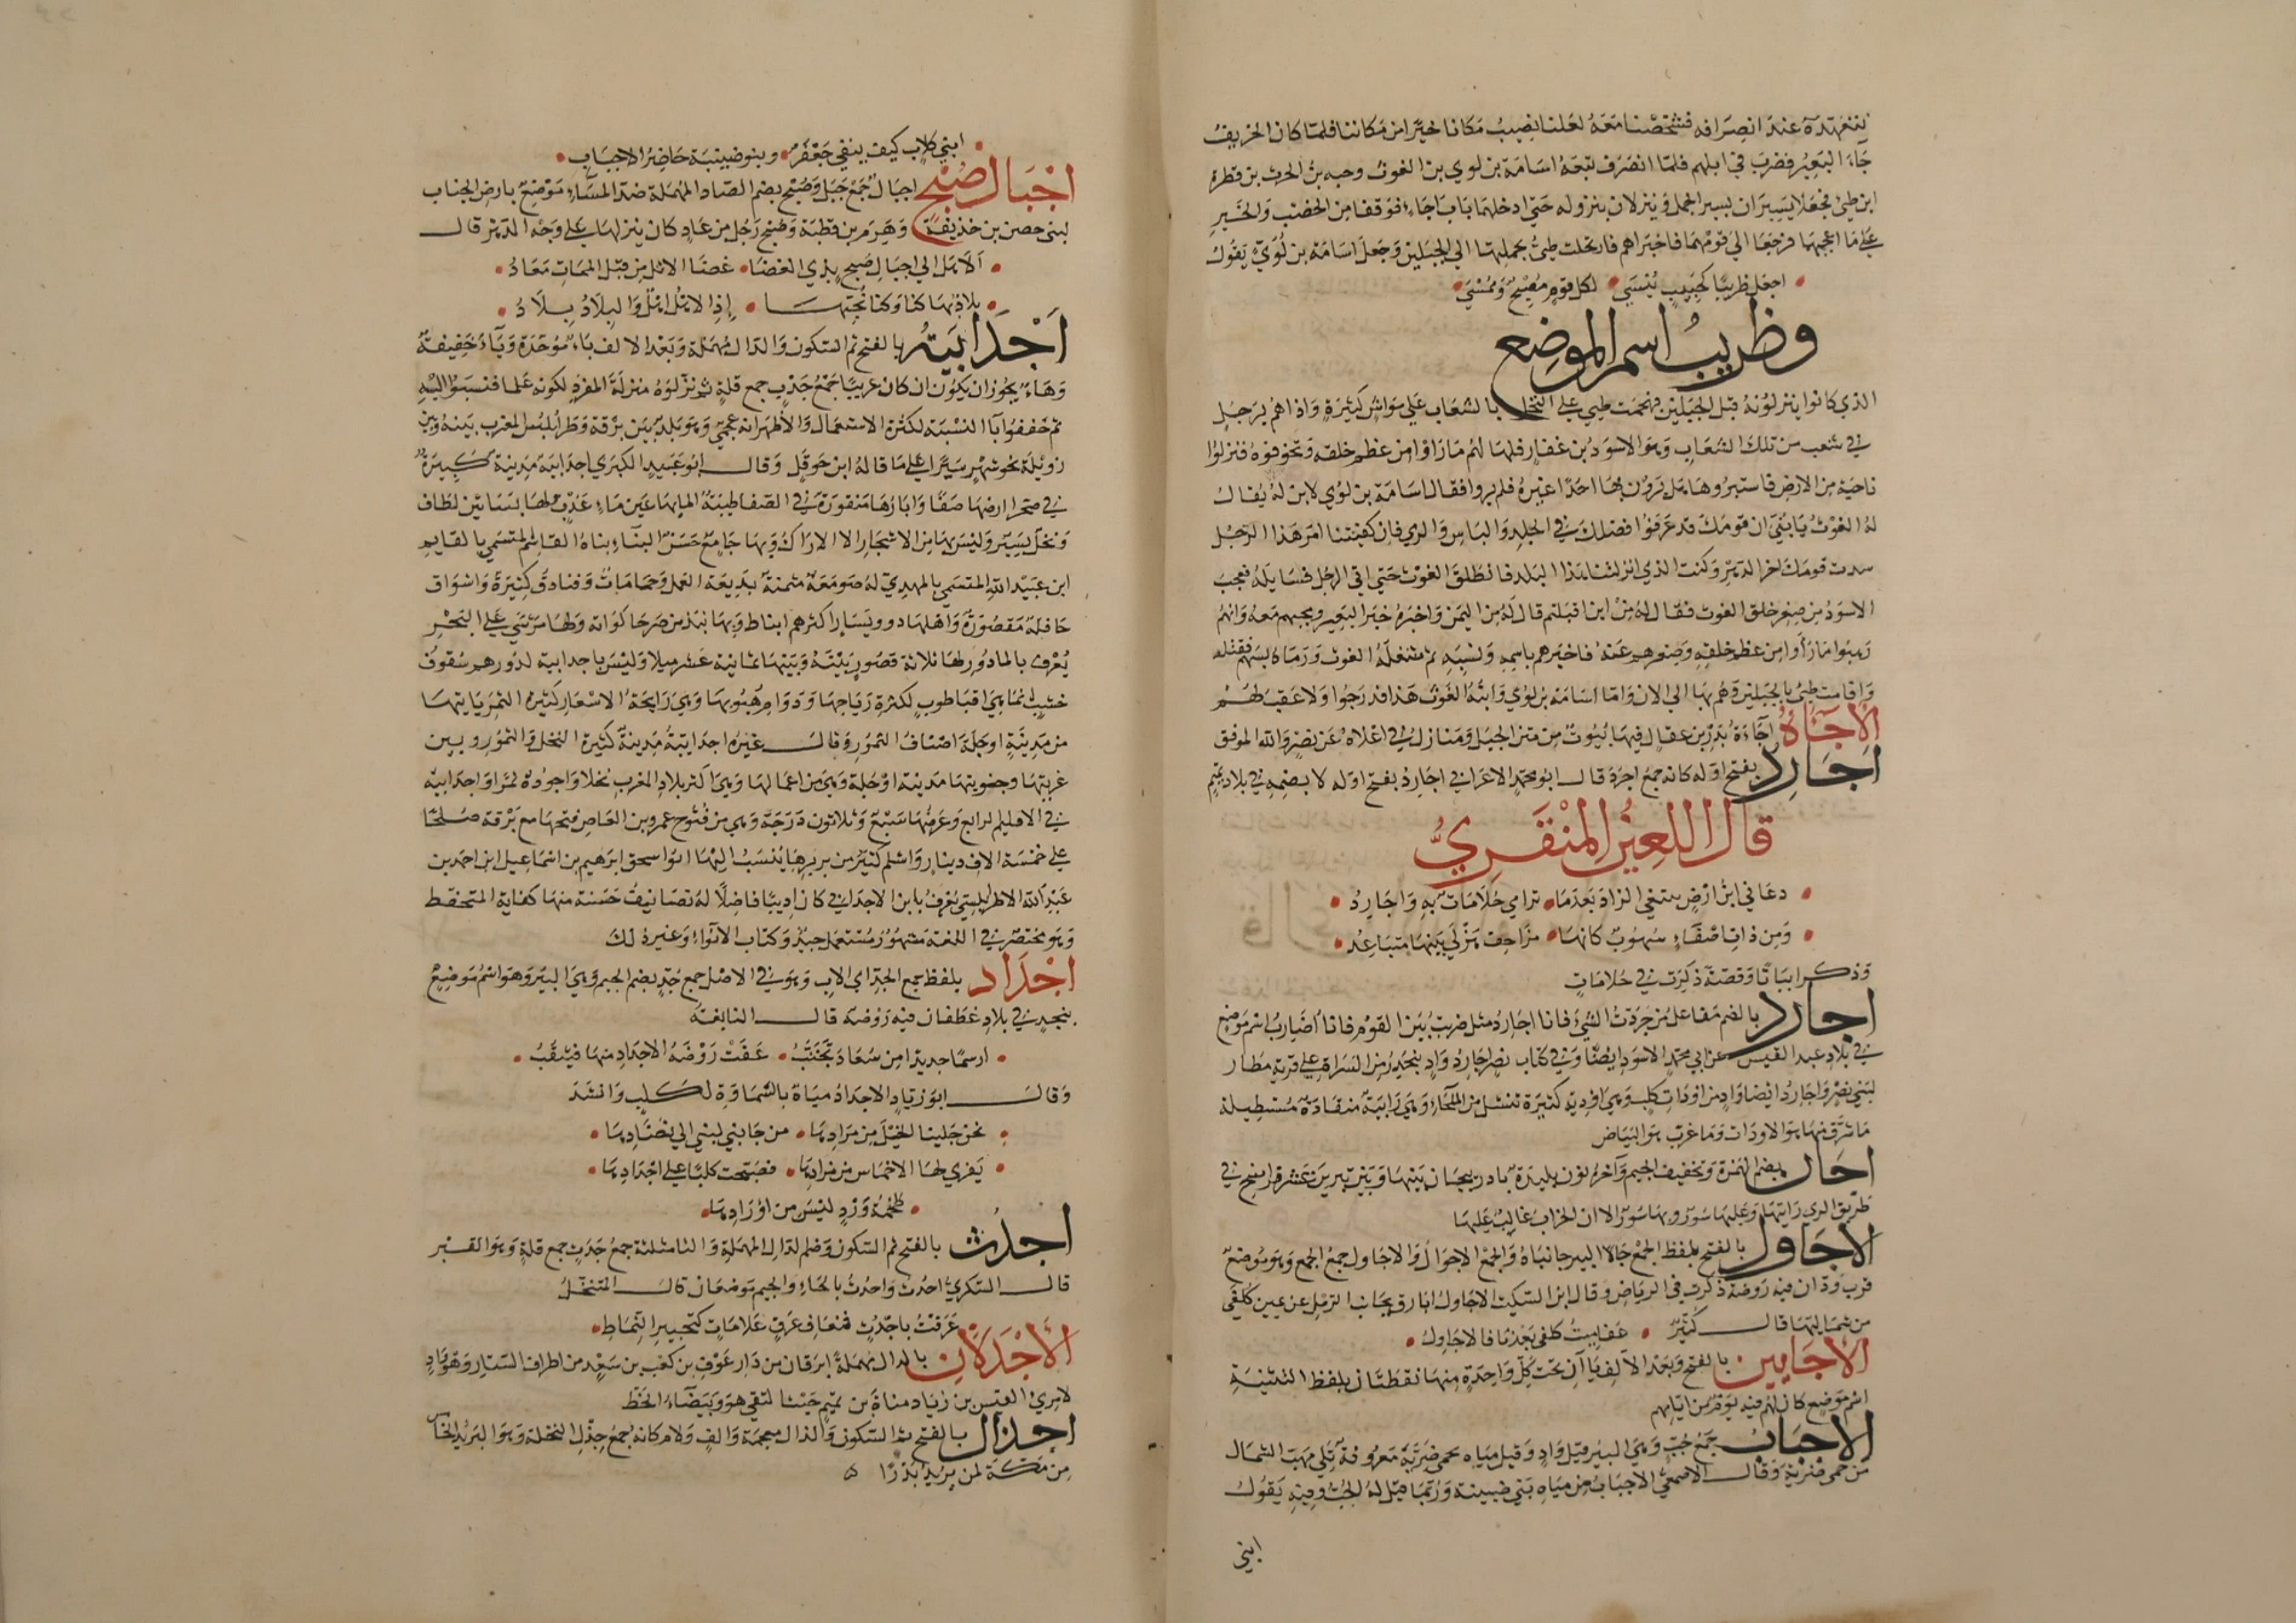 نتعهده عند انصرافه فشخصنا معه لعلنا نصيب مكانا خيرا من مكاننا فلما كان الخريف
جاء البعير فضرب في ابلهم فلما انصرف تبعه اسامة بن لوي بن الغوث وحبه بن الحرث بن فطرة
ابن طيئ فجعلا يسيران بسير الجمل وينزلان بنزوله حتى ادخلهما باب اجاء فوقفا من الخصب والخير
على ما اعجبهما فرجعا الى قومهما فاخبراهم فارتحلت طيئ بجملتها الى الجبلين وجعل اسامة بن لؤي يقول
اجعل ظريبا كحبيب ينسى لكل قوم مصبح وممسى
وظريب اسم الموضع
الذي كانوا ينزلونه قبل الجبلين فهجمت طيئ على النخل بالشعاب على مواش كثيرة واذا هم برجل
في شعب من تلك الشعاب وهو الاسود بن غفار فهالهم ما راوا من عظم خلقه وتخوفوه فنزلوا
ناحية من الارض فاستبروها هل يرون بها احدا غيره فلم يروا فقال اسامة بن لؤي لابن له يقال
له الغوث يا بني ان قومك قد عرفوا فضلك في الجلد والباس والرمي فان كفيتنا امر هذا الرجل
سدت قومك اخر الدهر وكنت الذي انزلتنا هذا البلد فانطلق الغوث حتى اتى الرجل فسايله فعجب
الاسود من صغر خلق الغوث فقال له من اين اقبلتم قال له من اليمن واخبره خبر البعير ومجيهم معه وانهم
رهبوا ما راوا من عظم خلقه وصغرهم عنه فاخبرهم باسمه ونسبه ثم شغله الغوث ورماه بسهم فقتله
واقامت طيئ بالجبلين وهم بها الى الان واما اسامة بن لؤي وابنه الغوث هذا فدرجوا ولا عقب لهم
الاجاءة اجاءة بدر بن عقال فيها بيوت من متن الجبل ومنازل في اعلاه عن نصر والله الموفق
اجارد بفتح اوله كانه جمع اجرد قال ابو محمد الاعرابي اجارد بفتح اوله لا بضمه في بلاد تميم
قال اللعين المنقري
دعاني ابن ارض يبتغي الزاد بعدما ترامى حلامات به واجارد
ومن ذات اصفاء سهوب كانها مزاحف هزلى بينها متباعد
وذكر ابياتا وقصة ذكرت في حلامات
اجارد بالضم مفاعل من جردت الشيء فانا اجارد مثل ضربت بين القوم فانا اضارب اسم موضع
في بلاد عبد القيس عن ابي محمد الاسود ايضا وفي كتاب نصر اجارد واد ينحدر من السراة على قرية مطار
لبني نصر واجارد ايضا واد من اودات كلب وهي اودية كثيرة تنشل من الملحاء وهي رابية منقادة مستطيلة
ما شرق منها هو الاودات وما غرب هو البياض
اجان بضم الهمزة وتخفيف الجيم واخره نون بليدة باذربيجان بينها وبين تبريز عشر فراسخ في
طريق الري رايتها وعليها سور وبها سوق الا ان الخراب غالب عليها
الاجاول بالفتح بلفظ الجمع جالا البير جانباه والجمع الاجوال والاجاول جمع الجمع وهو موضع
قرب ودان فيه روضة ذكرت في الرياض وقال ابن السكيت الاجاول ابارق بجانب الرمل عن يمين كلفى
من شماليها قال كثير عفا ميت كلفى بعدنا فالاجاول
الاجايين بالفتح وبعد الالف ياآن تحت كل واحدة منها نقطتان بلفظ التثنية
اسم موضع كان لهم فيه يوم من ايامهم
الاجباب جمع جب وهي البير قيل واد وقيل مياه بحمى ضرية معروفة تلي مهب الشمال
من حمى ضرية وقال الاصمعي الاجباب من مياه بني ضبينة وربما قيل له الجب وفيه يقول
ابني
ابني كلاب كيف ينفى جعفر وبنو ضبينة حاضر الاجباب
اجبال صبح اجبال جمع جبل وصبح بضم الصاد المهملة ضد المساء موضع بارض الجناب
لبني حصن بن حذيفة وهرم بن قطبة وصبح رجل من عاد كان ينزلها على وجه الدهر قال
الا هل الى اجبال صبح بذي الغضا غضا الاثل من قبل الممات معاد
بلاد بها كنا وكنا نحبها إذ الاهل اهل والبلاد بلاد
اجدابية بالفتح ثم السكون والدال مهملة وبعد الالف باء موحدة وياء خفيفة
وهاء يجوز ان يكون ان كان عربيا جمع جدب جمع قلة ثم نزلوه منزلة المفرد لكونه علما فنسبوا اليه
ثم خففوا ياء النسبة لكثرة الاستعمال والاظهر انه عجمي وهو بلد بين برقة وطرابلس المغرب بينه وبين
زويلة نحو شهر سيرا على ما قاله ابن حوقل وقال ابو عبيد البكري اجدابية مدينة كبيرة
في صحرا ارضها صفا وابارها منقورة في الصفا طيبة الما بها عين ماء عذب ولها بساتين لطاف
ونخل يسير وليس بها من الاشجار الا الاراك وبها جامع حسن البناء بناه القاسم المتسمى بالقايم
ابن عبيد الله المتسمى بالمهدي له صومعة مثمنة بديعة العمل وحمامات وفنادق كثيرة واسواق
حافلة مقصورة واهلها ذوو يسار اكثرهم انباط وبها نبذ من صرحا لواته ولها مرسى على البحر
يعرف بالمادور لها ثلاثة قصور بينه وبينها ثمانية عشر ميلا وليس باجدابية لدورهم سقوف
خشب انما هي اقباء طوب لكثرة رياحها ودوام هبوبها وهي رايحة الاسعار كثيرة التمر ياتيها
من مدينة اوجلة اصناف التمور وقال غيره اجدابية مدينة كثيرة النخل والتمور وبين
غربيها وجنوبيها مدينة اوجلة وهي من اعمالها وهي اكثر بلاد المغرب نخلا واجودها تمرا واجدابية
في الاقليم الرابع وعرضها سبع وثلاثون درجة وهي من فتوح عمرو بن العاص فتحها مع برقة صلحا
على خمسة الاف دينار واسلم كثير من بربرها ينسب اليها ابو اسحق ابرهيم بن اسماعيل ابن احمد بن
عبد الله الاطرابلسي يعرف بابن الاجدابي كان اديبا فاضلا له تصانيف حسنة منها كفاية المتحفظ
وهو مختصر في اللغة مشهور مستعمل جيد وكتاب الانواء وغير ذلك
اجداد بلفظ جمع الجد ابي الاب وهو في الاصل جمع جد بضم الجيم وهي البير وهو اسم موضع
بنجد في بلاد غطفان فيه روضة قال النابغة
ارسما جديدا من سعاد تجنب عفت روضة الاجداد منها فيثقب
وقال ابو زياد الاجداد مياه بالسماوة لكلب وانشد
نحن جلبنا الخيل من مرادها من جانبي لبنى الى نضادها
يفري لها الاخماس من مزادها فصبحت كلبا على اجدادها
طحمة ورد ليس من اورادها
اجدث بالفتح ثم السكون وضم الدال المهملة والثا مثلثة جمع جدث جمع قلة وهو القبر
قال السكري اجدث واحدث بالحاء والجيم موضعان قال المتنخل
عرفت باجدث فنعاف عرق علامات كتحبير النماط
الاجدلان بالدال مهملة ابرقان من دار عوف بن كعب بن سعد من اطراف الستار وهو واد
لامرئ القيس بن زياد مناة بن تميم حيث التقى هو وبيضاء الخط
اجذال بالفتح ثم السكون والذال معجمة والف ولام كانه جمع جذل النخلة وهو البريد الخامس
من مكة لمن يريد بدرا